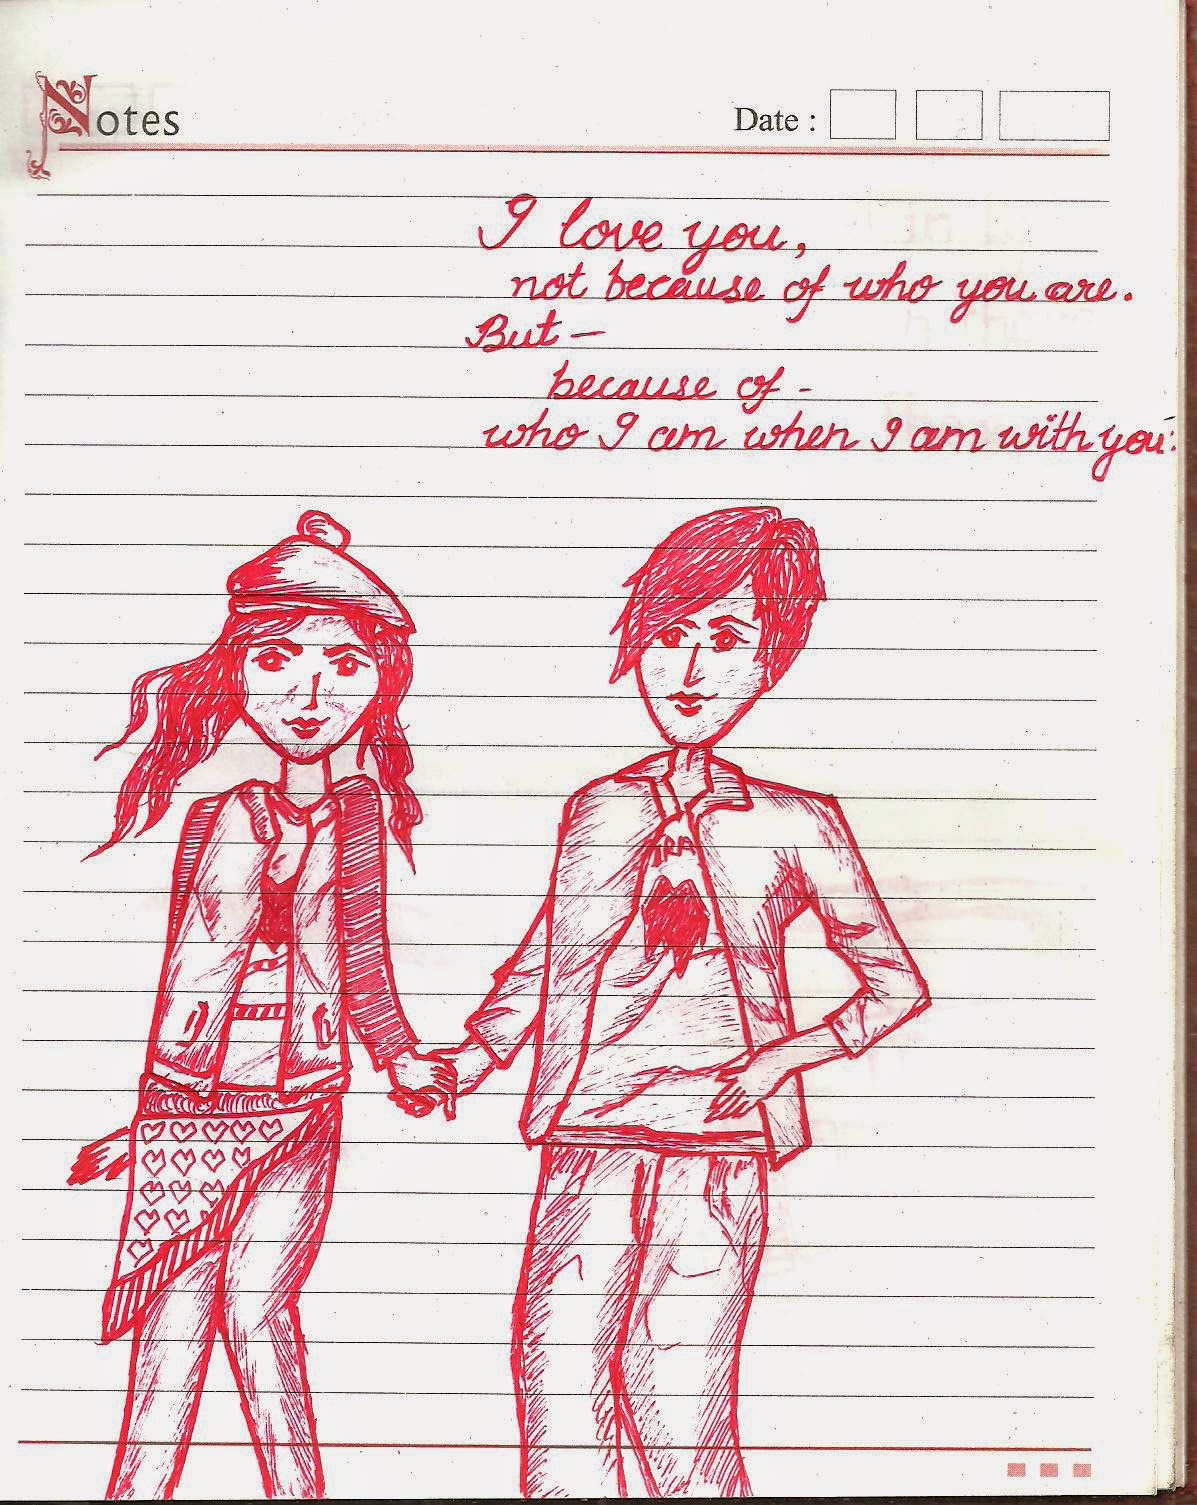 Notes
Date :
I love you,
not because of who you are.
But –
because of -
who I am when I am with you.